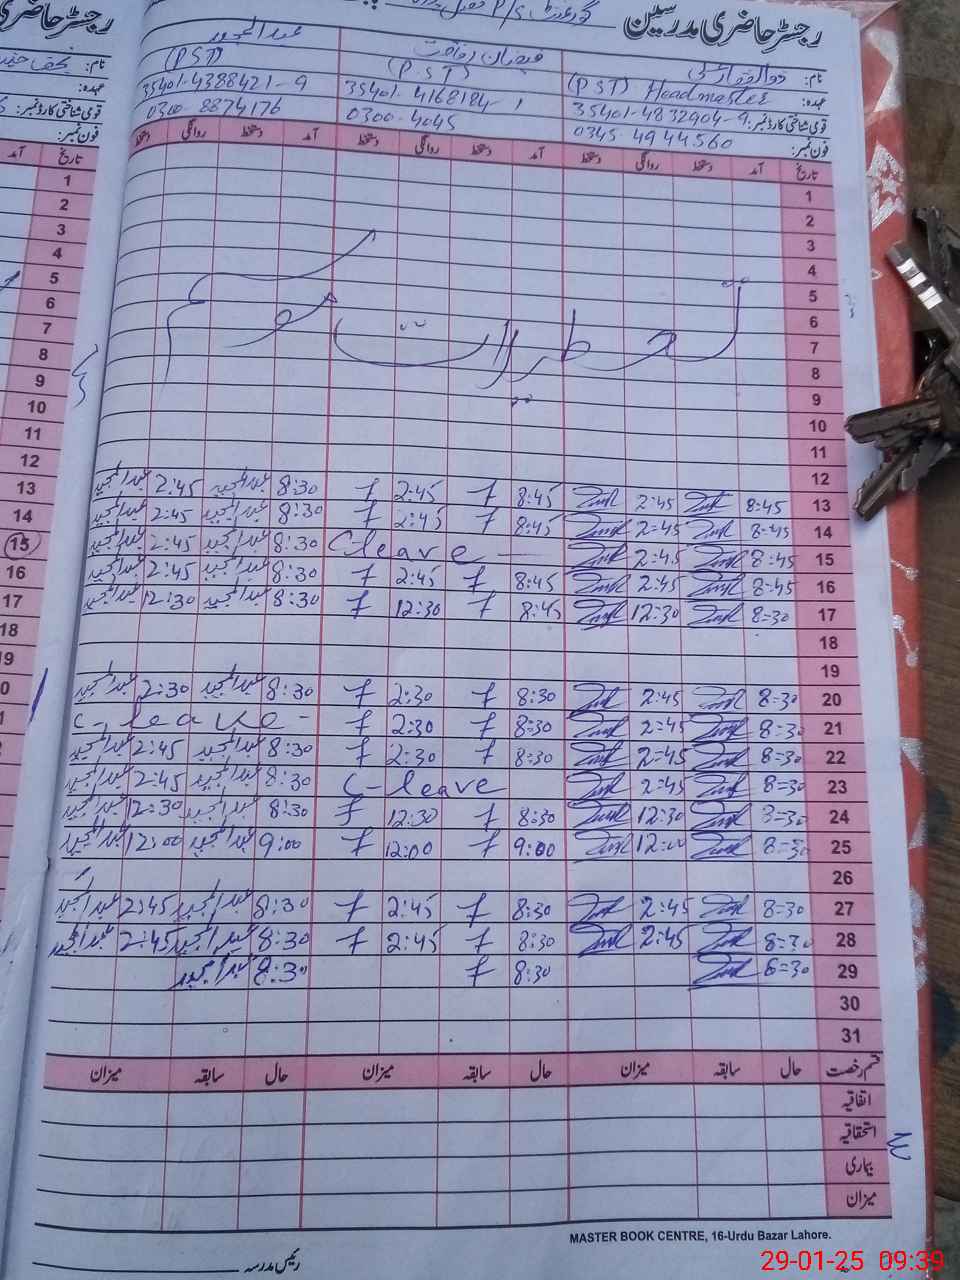 رجسٹر حاضری مدرسین
نام: ذوالفقار علی
فیضان رفاقت
عبدالمجید
عہدہ: (PST) Headmaster
(PST)
(PST)
قومی شناختی کارڈ نمبر: 35401-4832904-9
35401-4168184-1
35401-4388421-9
فون نمبر: 0345-4944560
0300-4045
0300-8874176
تاریخ آمد دستخط روانگی دستخط آمد دستخط روانگی دستخط آمد دستخط روانگی دستخط
1
2
3
4
5
6
7
8
9
10
11
تعطیلات موسم
12
13 8:45 2:45 8:45 7 2:45 7 8:30 عبدالمجید 2:45 عبدالمجید
14 8:45 2:45 8:45 7 2:45 7 8:30 عبدالمجید 2:45 عبدالمجید
15 8:45 2:45 C-leave 8:30 عبدالمجید 2:45 عبدالمجید
16 8:45 2:45 8:45 7 2:45 7 8:30 عبدالمجید 2:45 عبدالمجید
17 8:30 12:30 8:45 7 12:30 7 8:30 عبدالمجید 12:30 عبدالمجید
18
19
20 8:30 2:45 8:30 7 2:30 7 8:30 عبدالمجید 2:30 عبدالمجید
21 8:30 2:45 8:30 7 2:30 7 C-leave
22 8:30 2:45 8:30 7 2:30 7 8:30 عبدالمجید 2:45 عبدالمجید
23 8:30 2:45 C-leave 8:30 عبدالمجید 2:45 عبدالمجید
24 8:30 12:30 8:30 7 12:30 7 8:30 عبدالمجید 12:30 عبدالمجید
25 8:30 12:00 9:00 7 12:00 7 9:00 عبدالمجید 12:00 عبدالمجید
26
27 8:30 2:45 8:30 7 2:45 7 8:30 عبدالمجید 2:45 عبدالمجید
28 8:30 2:45 8:30 7 2:45 7 8:30 عبدالمجید 2:45 عبدالمجید
29 8:30 8:30 7 8:30 عبدالمجید
30
31
قسم رخصت حال سابقہ میزان حال سابقہ میزان حال سابقہ میزان
اتفاقیہ
استحقاقیہ
بیماری
میزان
MASTER BOOK CENTRE, 16-Urdu Bazar Lahore.
رئیس مدرسہ
29-01-25 09:39